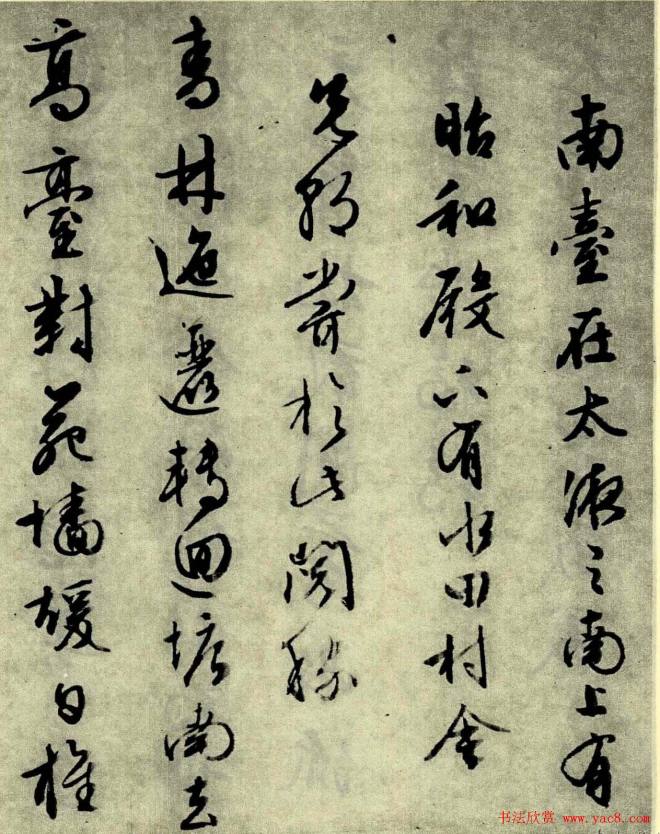 南臺在太液之南上有
昭和殿下有水田村舍
先朝嘗於此閱稼
青林迤邐轉迴塘南去
高臺對苑墻暖日旌
书法欣赏 www.yac8.com